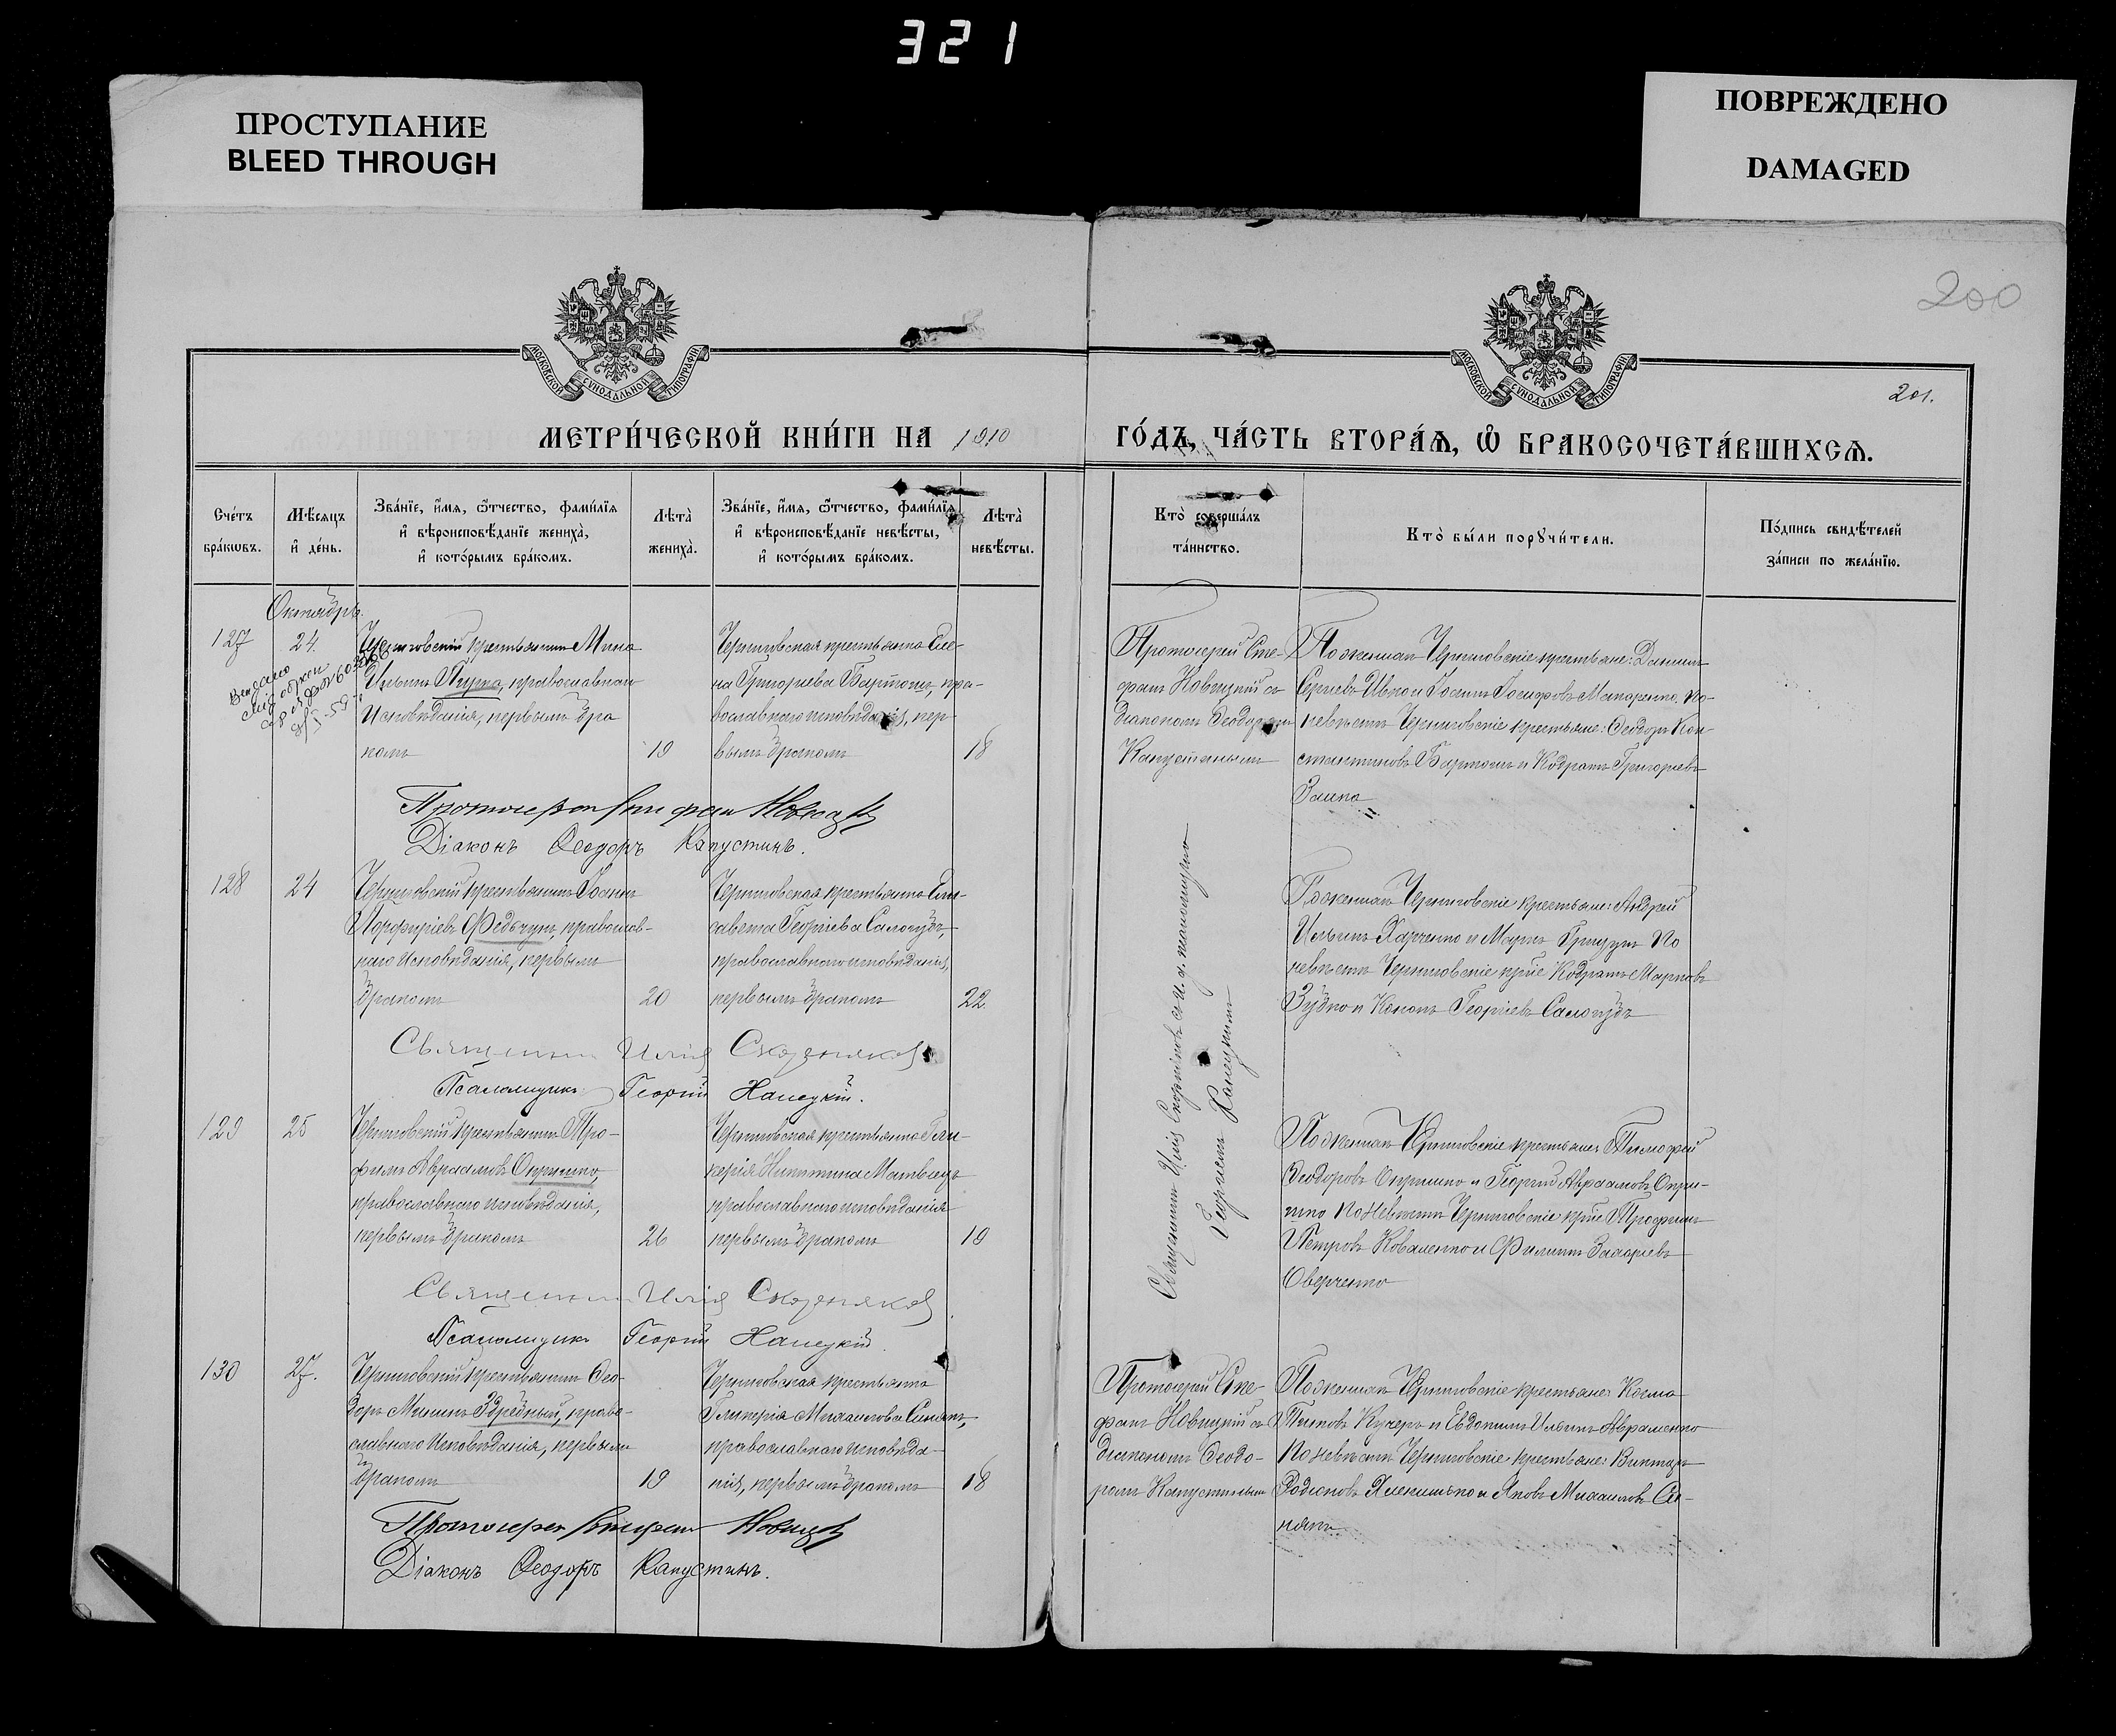 321
ПРОСТУПАНИЕ
BLEED THROUGH
ПОВРЕЖДЕНО
DAMAGED
200
201.
МОСКОВСКОЙ СѴНОДАЛЬНОЙ ТИПОГРАФІИ
МОСКОВСКОЙ СѴНОДАЛЬНОЙ ТИПОГРАФІИ
МЕТРИ́ЧЕСКОЙ КНИ́ГИ НА 1910 ГО́ДЪ, ЧА́СТЬ ВТОРА́Ѧ, Ѡ҆ БРАКОСОЧЕТА́ВШИХСѦ.
Сче́тъ
бра́кѡвъ.
Мѣ́сяцъ
и҆ де́нь.
Зва́нїе, и҆́мя, ѻ҆́тчество, фами́лїя
и҆ вѣроисповѣ́данїе жениха̀,
и҆ кото́рымъ бра́комъ.
Лѣта̀
жениха̀.
Зва́нїе, и҆́мя, ѻ҆́тчество, фами́лїя
и҆ вѣроисповѣ́данїе невѣ́сты,
и҆ кото́рымъ бра́комъ.
Лѣта̀
невѣ́сты.
Кто̀ соверша́лъ
та́инство.
Кто̀ бы́ли порꙋчи́тели.
По́дпись свидѣ́телей
за́писи по жела́нїю.
Октябрь.
127
24.
Черниговскій крестьянинъ Мина
Ильинъ православнаго
исповѣданія, первымъ бра
комъ
19
Черниговская крестьянка Еле-
на Григорьева Бартошъ, пра-
вославнаго исповѣданія, пер
вымъ бракомъ
18
Протоіерей Сте-
фанъ Новицкій съ
діакономъ Ѳеодоромъ
Капустинымъ
По женихѣ Черниговскіе крестьяне: Даніилъ
Сергіевъ Ивко и Іоаннъ Іосифовъ Макаренко. По
невѣстѣ Черниговскіе крестьяне: Ѳеодоръ Кон-
стантиновъ Бартошъ и Кодратъ Григорьевъ
Заика
Протоіерей Стефанъ Новицкій
Діаконъ Ѳеодоръ Капустинъ.
128
24
Черниговскій крестьянинъ Іоаннъ
Порфиріевъ Федькунъ, православ-
наго исповѣданія, первымъ
бракомъ
20
Черниговская крестьянка Ели-
савета Георгіева Салогубъ,
православнаго исповѣданія,
первымъ бракомъ
22.
Священникъ Илія съ и. д. псаломщика
Георгіемъ Ханецкимъ
По женихѣ Черниговскіе крестьяне: Андрей
Ильинъ Харченко и Маркъ По
невѣстѣ Черниговскіе кр-не Кодратъ Марковъ
Зубко и Кононъ Георгіевъ Салогубъ
Священникъ Илія
Псаломщикъ Георгій Ханецкій.
129
25
Черниговскій крестьянинъ Тро-
фимъ Авраамовъ Опришко,
православнаго исповѣданія,
первымъ бракомъ
26
Черниговская крестьянка Гли-
керія Никитина Матвіецъ
православнаго исповѣданія
первымъ бракомъ
19
По женихѣ Черниговскіе крестьяне Тимофей
Ѳеодоровъ Опришко и Георгій Авраамовъ Опри-
шко По невѣстѣ Черниговскіе кр-не Трофимъ
Петровъ Коваленко и Филиппъ Захаріевъ
Оверченко
Священникъ Илія
Псаломщикъ Георгій Ханецкій.
130
27.
Черниговскій крестьянинъ Ѳео-
доръ Мининъ Здредный, право-
славнаго исповѣданія, первымъ
бракомъ
19
Черниговская крестьянка
Гликерія Михаилова Синякъ,
православнаго исповѣда-
нія, первымъ бракомъ
18
Протоіерей Сте-
фанъ Новицкій съ
діакономъ Ѳеодо-
ромъ Капустинымъ
По женихѣ Черниговскіе крестьяне: Косма
Титовъ Кучеръ и Евдокимъ Ильинъ Авраменко
По невѣстѣ Черниговскіе крестьяне: Викторъ
Родіоновъ и Яковъ Михаиловъ Си-
някъ
Протоіерей Стефанъ Новицкій
Діаконъ Ѳеодоръ Капустинъ.